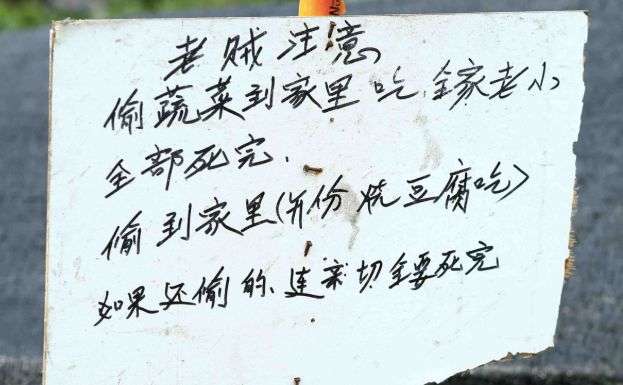 老贼注意
偷蔬菜到家里吃,全家老小
全部死完.
偷到家里(并份烧豆腐吃)
如果还偷的、连亲切全要死完